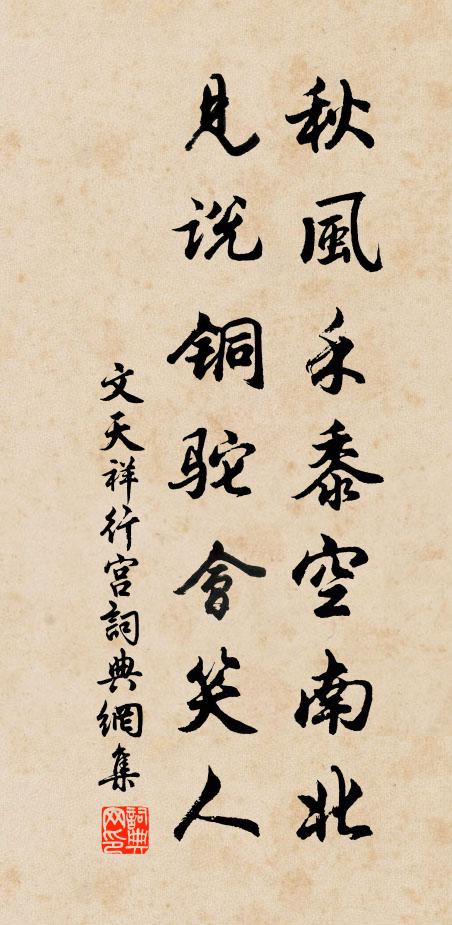 秋風禾黍空南北
見説銅駝會笑人
文天祥行宮詞典網集
詞典網印